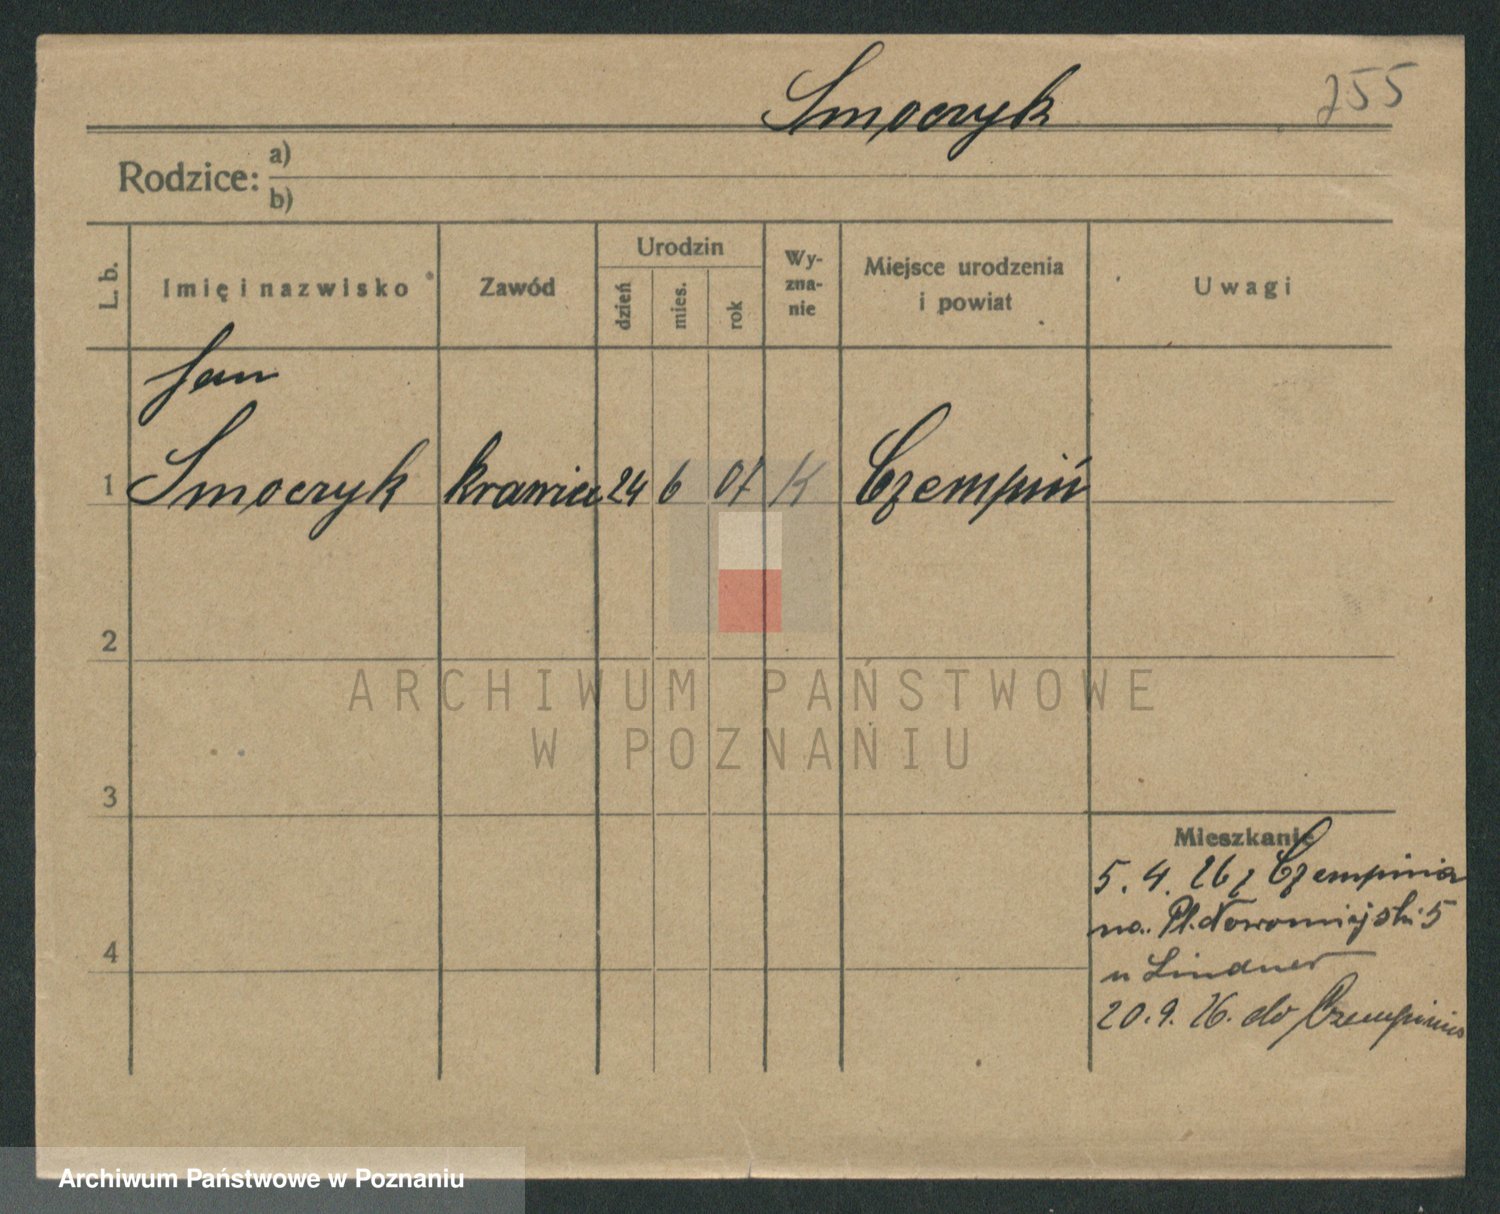 Smoczyk
255
Rodzice: a)
b)
L. b.
Imię i nazwisko
Zawód
Urodzin
dzień
mies.
rok
Wy-
zna-
nie
Miejsce urodzenia
i powiat
Uwagi
Jan
1 Smoczyk krawiec 24 6 07 K Czempiń
2
ARCHIWUM PAŃSTWOWE
W POZNANIU
3
Mieszkanie
5.4.26 z Czempinia
na Pl. Nowomiejski 5
u Lindner
4
20.9.26. do Czempinia
Archiwum Państwowe w Poznaniu